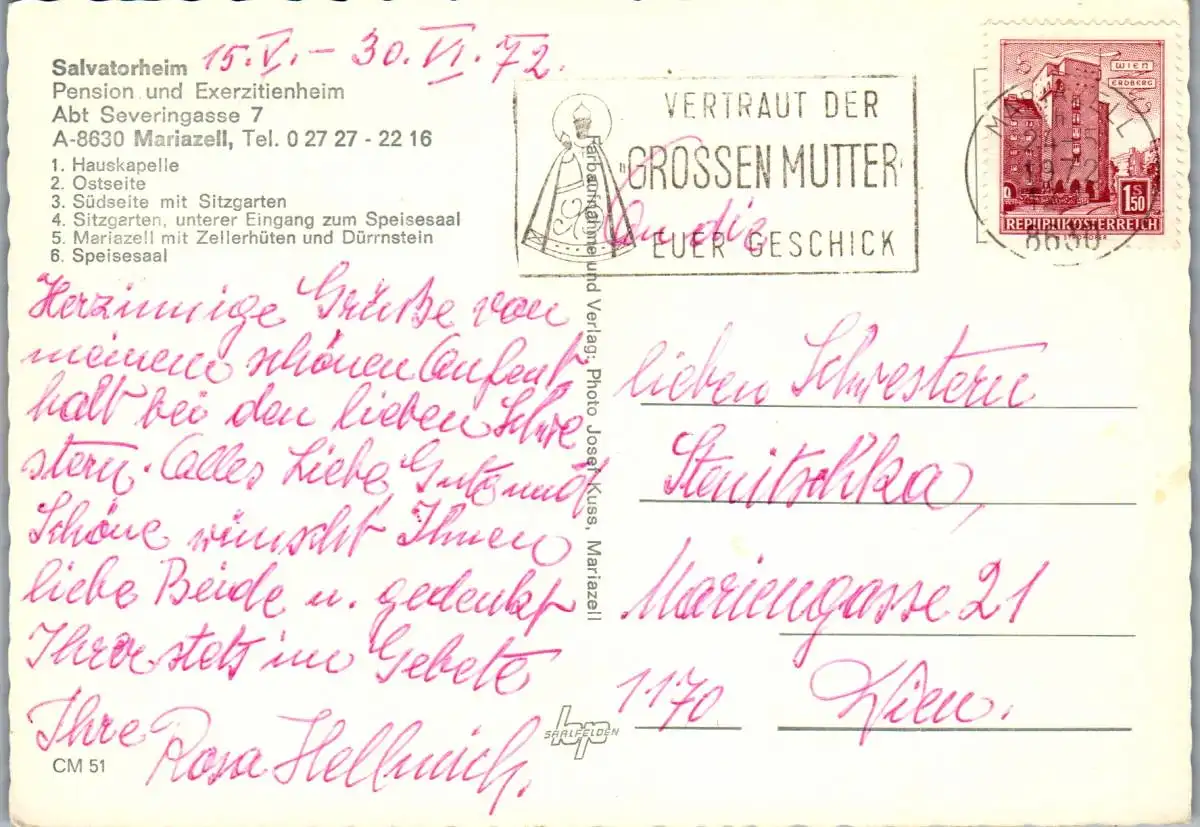 15. V. – 30. VI. 72.
Salvatorheim
Pension und Exerzitienheim
Abt Severingasse 7
A-8630 Mariazell, Tel. 0 27 27 - 22 16
1. Hauskapelle
2. Ostseite
3. Südseite mit Sitzgarten
4. Sitzgarten, unterer Eingang zum Speisesaal
5. Mariazell mit Zellerhüten und Dürrnstein
6. Speisesaal
Herzinnige Grüße von
meinem schönen Aufent
halt bei den lieben Schwe
stern. Alles Liebe Gute und
Schöne wünscht Ihnen
liebe Beide u. gedenkt
Ihrer stets im Gebete
Ihre
Rosa Hellmich.
CM 51
Farbaufnahme und Verlag: Photo Josef Kuss, Mariazell
SAALFELDEN
VERTRAUT DER
„GROSSEN MUTTER"
EUER GESCHICK
WIEN
ERDBERG
1972
8630
S
1.50
REPUBLIK ÖSTERREICH
An die
lieben Schwestern
Stenitschka,
Mariengasse 21
1170 Wien.